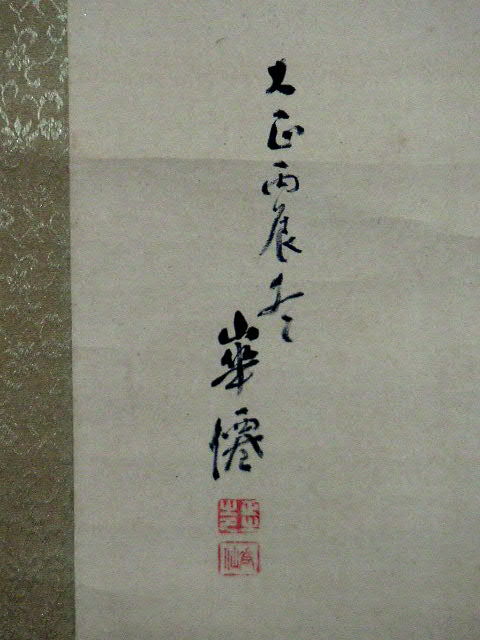 大正丙辰冬
崋僊